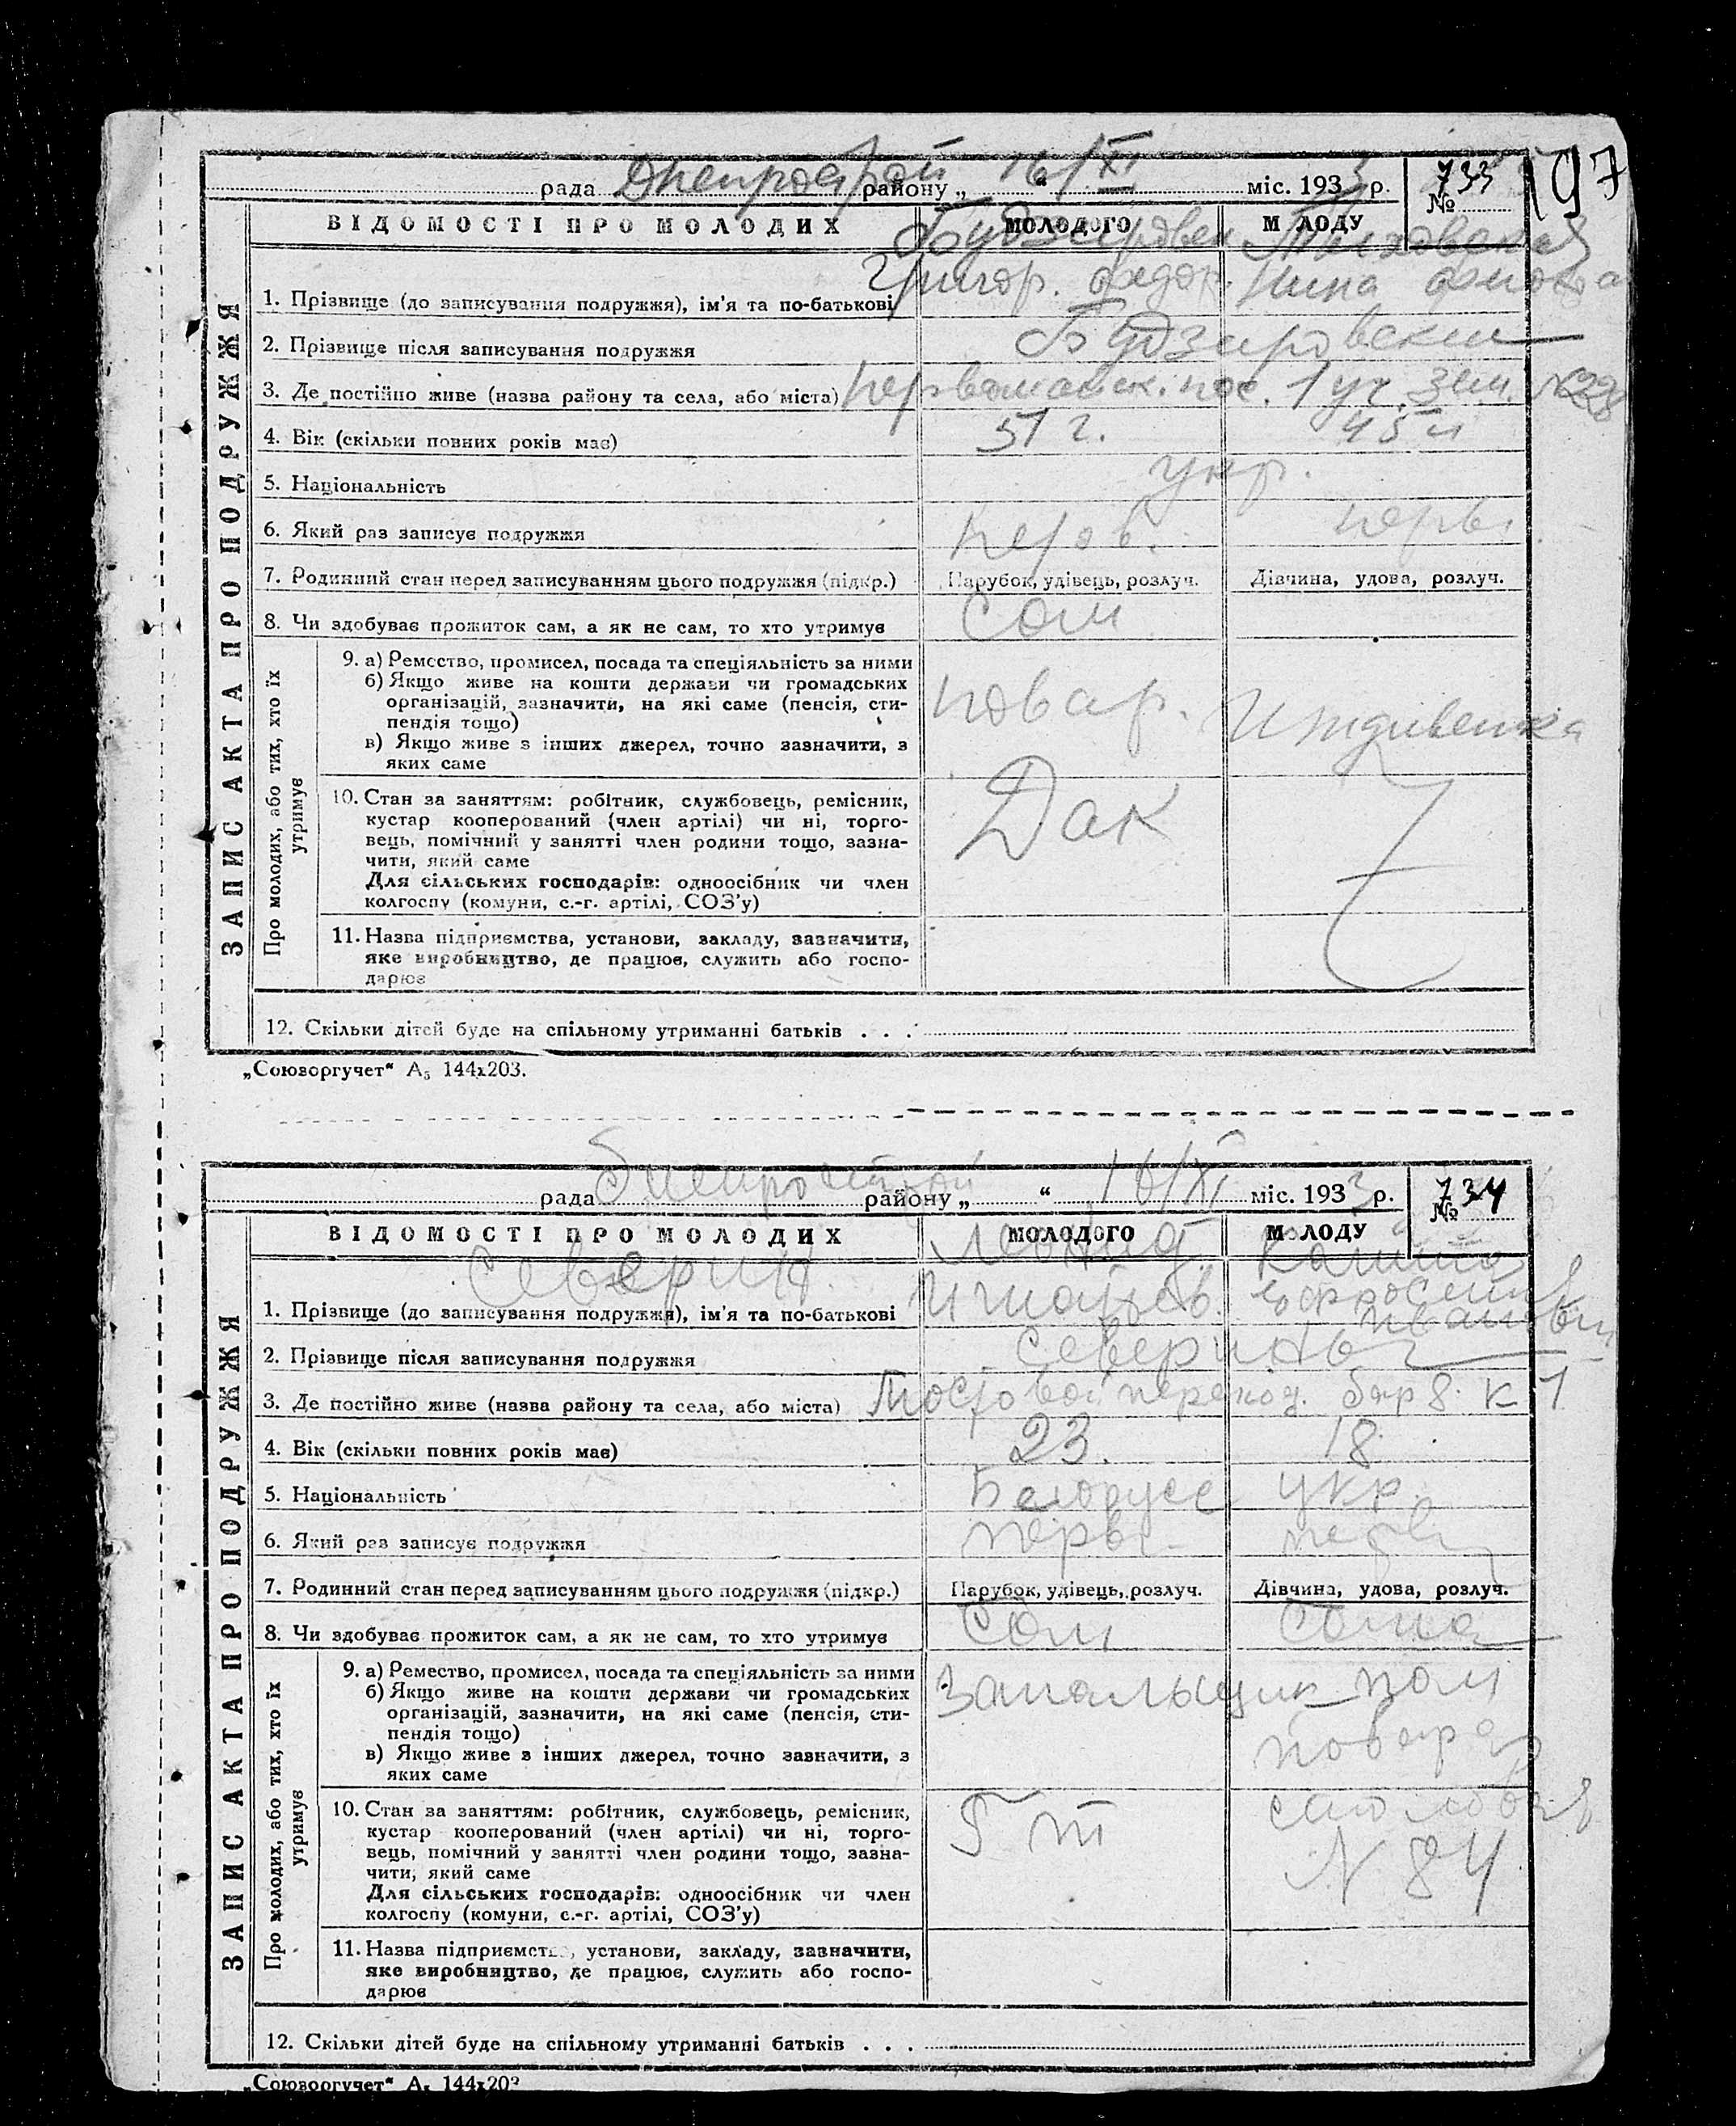 рада Днепрострой району „ 16/XI “ міс. 1933 р. № 733
197
ВІДОМОСТІ ПРО МОЛОДИХ МОЛОДОГО МОЛОДУ
ЗАПИС АКТА ПРО ПОДРУЖЖЯ
1. Прізвище (до записування подружжя), ім'я та по-батькові Григор. Федор. Нина
2. Прізвище після записування подружжя
3. Де постійно живе (назва району та села, або міста) Первомайск. пос. 1 уч. Зем. №228
4. Вік (скільки повних років має) 51 г. 45
5. Національність укр.
6. Який раз записує подружжя перв. первы
7. Родинний стан перед записуванням цього подружжя (підкр.) Парубок, удівець, розлуч. Дівчина, удова, розлуч.
8. Чи здобуває прожиток сам, а як не сам, то хто утримує Сам
Про молодих, або тих, хто їх утримує
9. а) Ремество, промисел, посада та спеціяльність за ними
б) Якщо живе на кошти держави чи громадських
організацій, зазначити, на які саме (пенсія, сти-
пендія тощо)
в) Якщо живе з інших джерел, точно зазначити, з
яких саме
повар. Иждивенка
10. Стан за заняттям: робітник, службовець, ремісник,
кустар кооперований (член артілі) чи ні, торго-
вець, помічний у занятті член родини тощо, зазна-
чити, який саме
Для сільських господарів: одноосібник чи член
колгоспу (комуни, с.-г. артілі, СОЗ'у)
Дак
11. Назва підприємства, установи, закладу, зазначити,
яке виробництво, де працює, служить або госпо-
дарює
12. Скільки дітей буде на спільному утриманні батьків . . .
„Союзоргучет“ А5 144х203.
рада Днепрострой району „ “ 16/XI міс. 1933 р. № 734
ВІДОМОСТІ ПРО МОЛОДИХ МОЛОДОГО МОЛОДУ
ЗАПИС АКТА ПРО ПОДРУЖЖЯ
Северин Леонид
1. Прізвище (до записування подружжя), ім'я та по-батькові Игнатьев. Ефросения
Ивановн
2. Прізвище після записування подружжя Северины
3. Де постійно живе (назва району та села, або міста) Мостовой переход. бар 8. к 1
4. Вік (скільки повних років має) 23. 18
5. Національність Белорусс укр.
6. Який раз записує подружжя первы первы
7. Родинний стан перед записуванням цього подружжя (підкр.) Парубок, удівець, розлуч. Дівчина, удова, розлуч.
8. Чи здобуває прожиток сам, а як не сам, то хто утримує Сам Сама
Про молодих, або тих, хто їх утримує
9. а) Ремество, промисел, посада та спеціяльність за ними
б) Якщо живе на кошти держави чи громадських
організацій, зазначити, на які саме (пенсія, сти-
пендія тощо)
в) Якщо живе з інших джерел, точно зазначити, з
яких саме
Запальщик пом
повара
10. Стан за заняттям: робітник, службовець, ремісник,
кустар кооперований (член артілі) чи ні, торго-
вець, помічний у занятті член родини тощо, зазна-
чити, який саме
Для сільських господарів: одноосібник чи член
колгоспу (комуни, с.-г. артілі, СОЗ'у)
столовая
N 84
11. Назва підприємства, установи, закладу, зазначити,
яке виробництво, де працює, служить або госпо-
дарює
12. Скільки дітей буде на спільному утриманні батьків . . .
„Союзоргучет“ А5 144х203